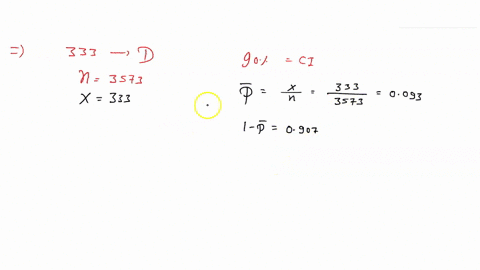 =) 333 → D
n = 3573
X = 333
90% = CI
p̅ = x/n = 333/3573 = 0.093
1-p̅ = 0.907